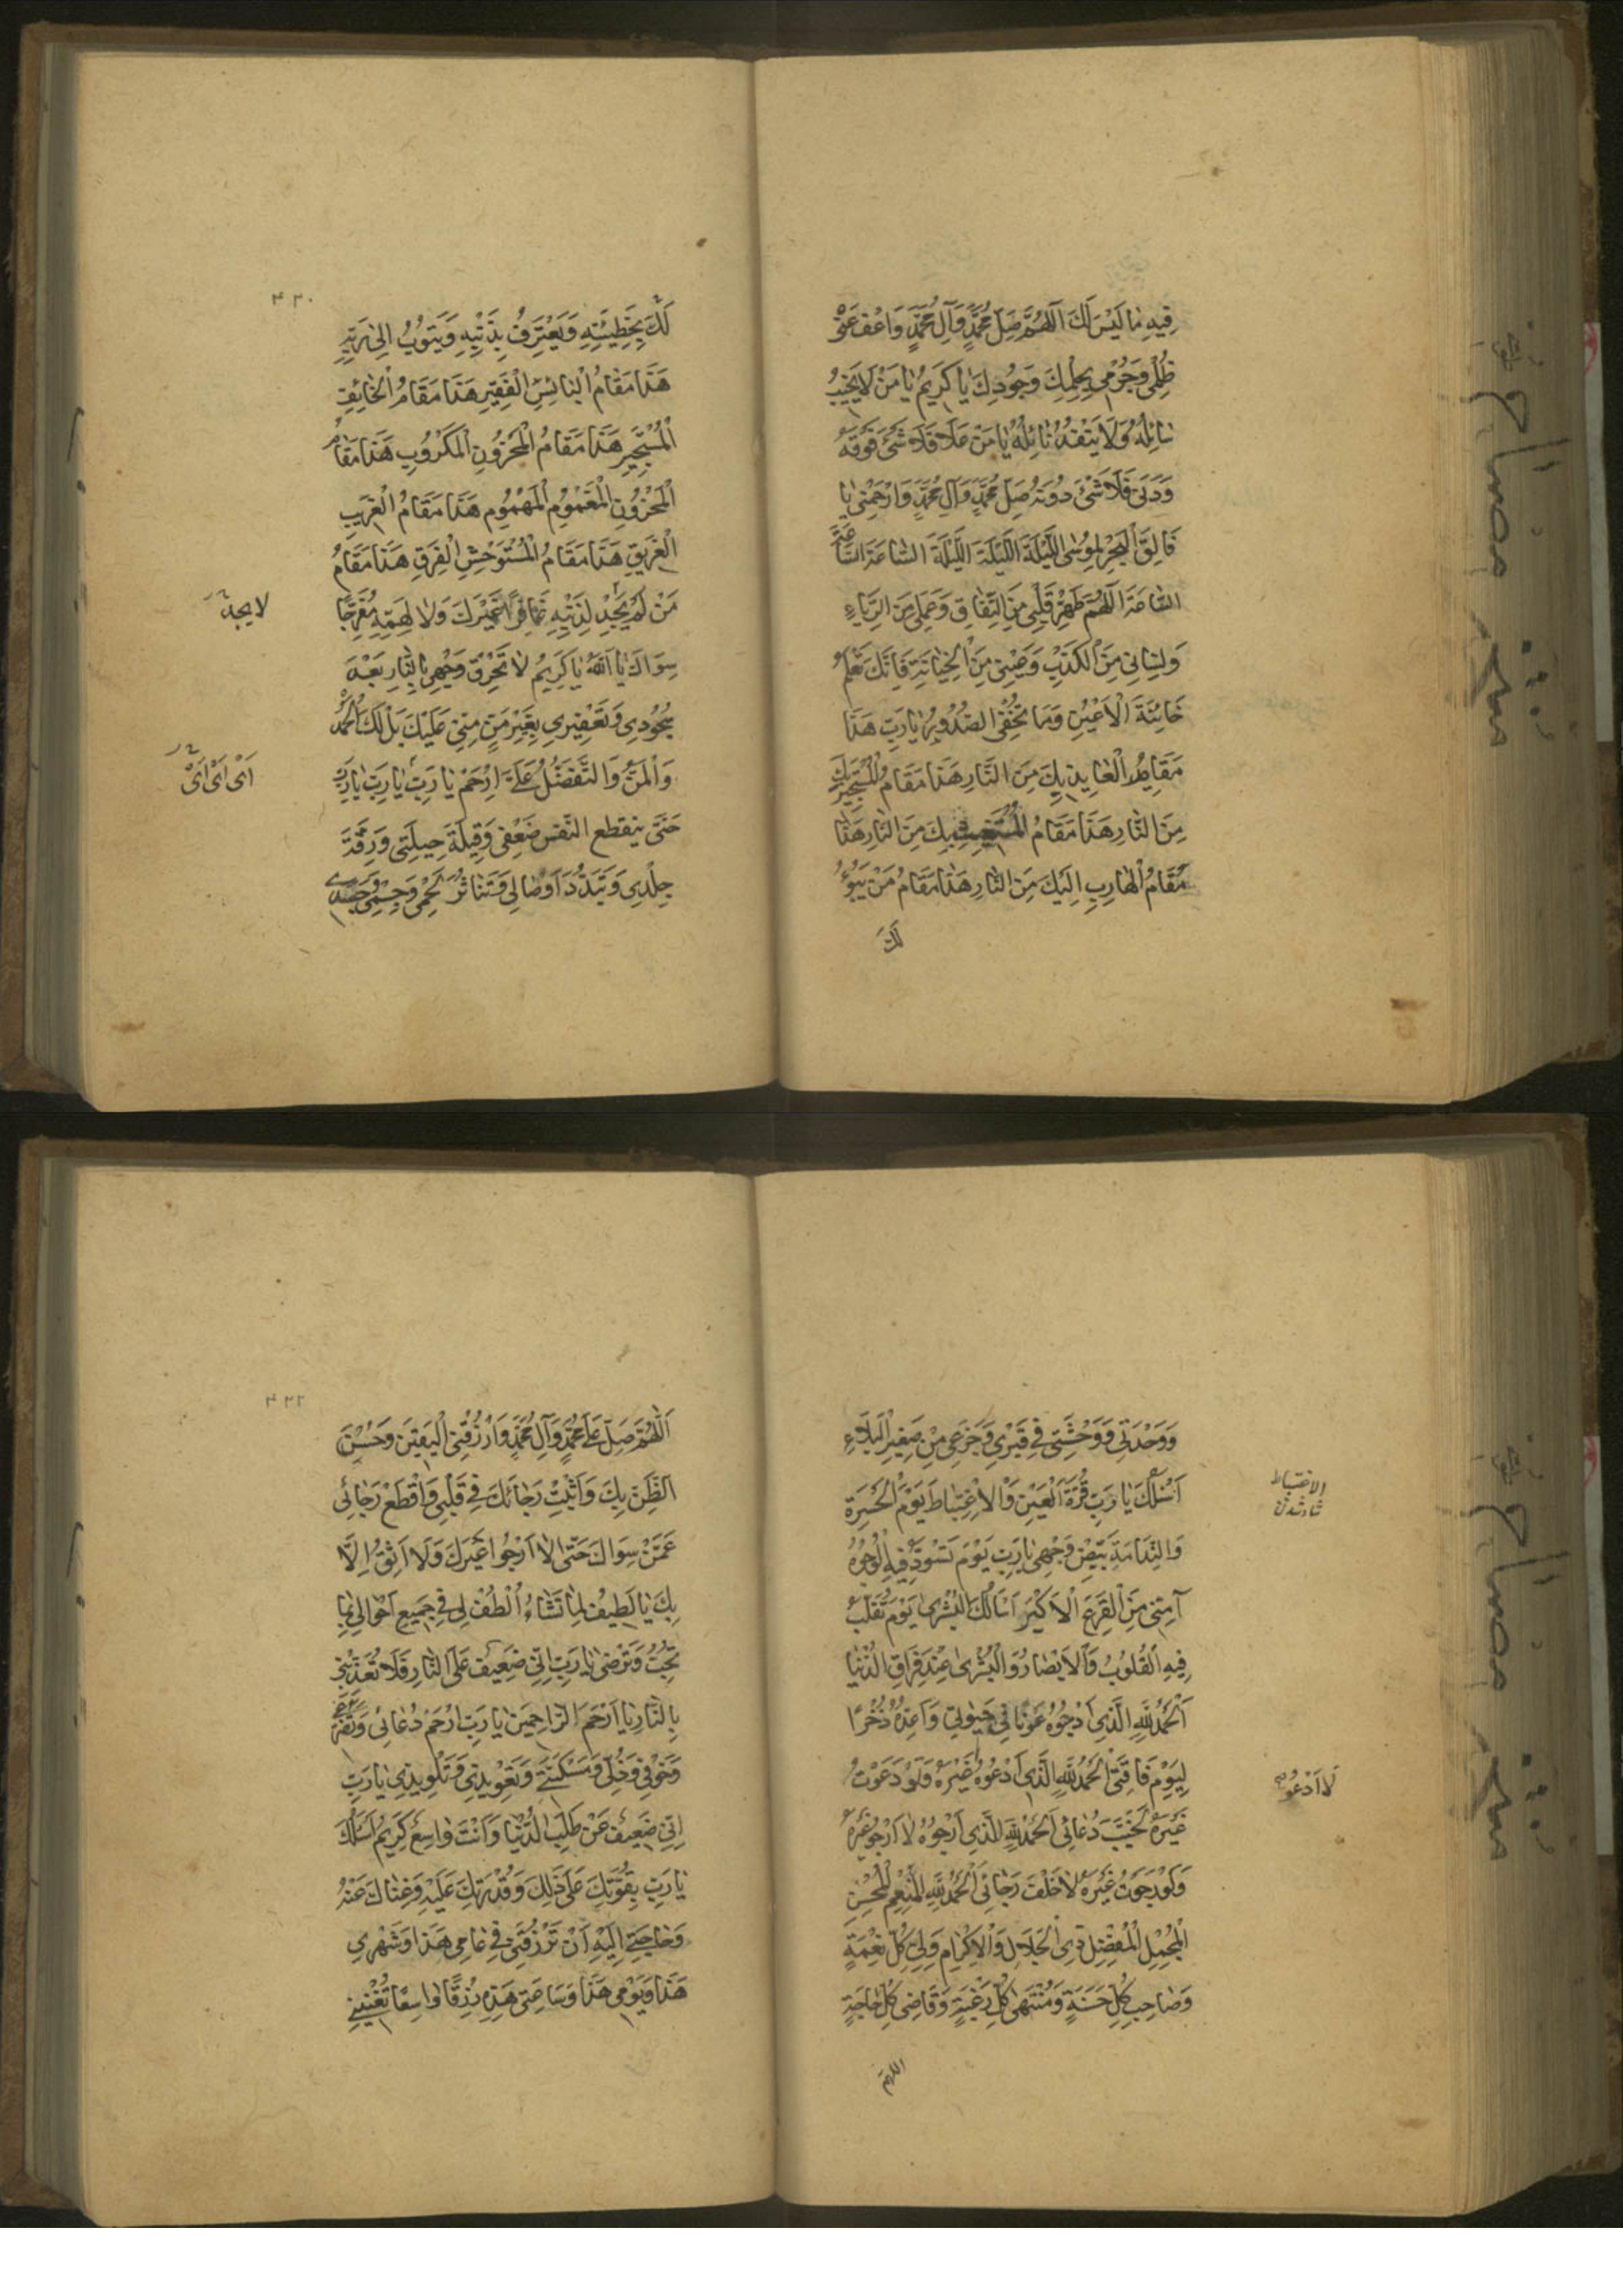 فِيهِ مَا لَيْسَ لَكَ اَللّٰهُمَّ صَلِّ مُحَمَّدٍ وَآلِ مُحَمَّدٍ وَاعْفُ عَنْ
ظُلْمِي وَجُرْمِي بِحِلْمِكَ وَجُودِكَ يَا كَرِيمُ يَا مَنْ لَا يَخِيبُ
سَائِلُهُ وَلَا يَنْفَدُ نَائِلُهُ يَا مَنْ عَلَا فَلَا شَيْءَ فَوْقَهُ
وَدَنَى فَلَا شَيْءَ دُونَهُ صَلِّ مُحَمَّدٍ وَآلِ مُحَمَّدٍ وَارْحَمْنِي يَا
فَالِقَ الْبَحْرِ لِمُوسَى اللَّيْلَةَ اللَّيْلَةَ اللَّيْلَةَ السَّاعَةَ السَّاعَةَ
السَّاعَةَ اَللّٰهُمَّ طَهِّرْ قَلْبِي مِنَ النِّفَاقِ وَعَمَلِي مِنَ الرِّيَاءِ
وَلِسَانِي مِنَ الْكَذِبِ وَعَيْنِي مِنَ الْخِيَانَةِ فَاِنَّكَ تَعْلَمُ
خَائِنَةَ الْأَعْيُنِ وَمَا تُخْفِي الصُّدُورُ يَا رَبِّ هَذَا
مَقَامُ الْعَايِذِ بِكَ مِنَ النَّارِ هَذَا مَقَامُ الْمُسْتَجِيرِ بِكَ
مِنَ النَّارِ هَذَا مَقَامُ الْمُسْتَغِيثِ بِكَ مِنَ النَّارِ هَذَا
مَقَامُ الْهَارِبِ اِلَيْكَ مِنَ النَّارِ هَذَا مَقَامُ مَنْ يَبُوءُ
لَكَ
۴۳۰
لَكَ بِخَطِيئَتِهِ وَيَعْتَرِفُ بِذَنْبِهِ وَيَتُوبُ اِلَى رَبِّهِ
هَذَا مَقَامُ الْبَائِسِ الْفَقِيرِ هَذَا مَقَامُ الْخَائِفِ
الْمُسْتَجِيرِ هَذَا مَقَامُ الْمَحْزُونِ الْمَكْرُوبِ هَذَا مَقَامُ
الْمَحْزُونِ الْمَغْمُومِ الْمَهْمُومِ هَذَا مَقَامُ الْغَرِيبِ
الْغَرِيقِ هَذَا مَقَامُ الْمُسْتَوْحِشِ الْفَرِقِ هَذَا مَقَامُ
مَنْ لَمْ يَجِدْ لِذَنْبِهِ غَافِرًا غَيْرَكَ وَلَا لِهَمِّهِ مُفَرِّجًا
لا يجد
سِوَاكَ يَا اَللّٰهُ يَا كَرِيمُ لَا تُحْرِقْ وَجْهِي بِالنَّارِ بَعْدَ
سُجُودِي وَتَعْفِيرِي بِغَيْرِ مَنٍّ مِنِّي عَلَيْكَ بَلْ لَكَ الْحَمْدُ
وَالْمَنُّ وَالتَّفَضُّلُ عَلَيَّ اِرْحَمْ يَا رَبِّ يَا رَبِّ يَا رَبِّ
اَیْ اَیْ اَیْ
حَتَّى ينقطع النَّفَس ضَعْفِي وَقِلَّةَ حِيلَتِي وَرِقَّةَ
جِلْدِي وَتَبَدُّدَ اَوْصَالِي وَتَنَاثُرَ لَحْمِي وَجِسْمِي وَجَسَدِي
وَوَحْدَتِي وَوَحْشَتِي فِي قَبْرِي وَجَزَعِي مِنْ صَغِيرِ الْبَلَاءِ
اَسْئَلُكَ يَا رَبِّ قُرَّةَ الْعَيْنِ وَالْاِغْتِبَاطَ يَوْمَ الْحَسْرَةِ
الاغتباط
شاد شدن
وَالنَّدَامَةِ بَيِّضْ وَجْهِي يَا رَبِّ يَوْمَ تَسْوَدُّ فِيهِ الْوُجُوهُ
آمِنِّي مِنَ الْفَزَعِ الْاَكْبَرِ اَسْاَلُكَ الْبُشْرَى يَوْمَ تُقَلَّبُ
فِيهِ الْقُلُوبُ وَالْاَبْصَارُ وَالْبُشْرَى عِنْدَ فِرَاقِ الدُّنْيَا
اَلْحَمْدُ لِلّٰهِ الَّذِي اَرْجُوهُ عَوْنًا فِي حَيٰوتِي وَاُعِدُّهُ ذُخْرًا
لِيَوْمِ فَاقَتِي اَلْحَمْدُ لِلّٰهِ الَّذِي اَدْعُوهُ غَيْرَهُ وَلَوْ دَعَوْتُ
لَا اَدْعُو
غَيْرَهُ لَخَيَّبَ دُعَائِي اَلْحَمْدُ لِلّٰهِ الَّذِي اَرْجُوهُ لَا اَرْجُو غَيْرَهُ
وَلَوْ رَجَوْتُ غَيْرَهُ لَاَخْلَفَ رَجَائِي اَلْحَمْدُ لِلّٰهِ الْمُنْعِمِ الْمُحْسِنِ
الْمُجْمِلِ الْمُفْضِلِ ذِي الْجَلَالِ وَالْاِكْرَامِ وَلِيِّ كُلِّ نِعْمَةٍ
وَصَاحِبِ كُلِّ حَسَنَةٍ وَمُنْتَهَى كُلِّ رَغْبَةٍ وَقَاضِي كُلِّ حَاجَةٍ
اللهم
۴۳۲
اَللّٰهُمَّ صَلِّ عَلَى مُحَمَّدٍ وَآلِ مُحَمَّدٍ وَارْزُقْنِي الْيَقِينَ وَحُسْنَ
الظَّنِّ بِكَ وَاَثْبِتْ رَجَائَكَ فِي قَلْبِي وَاقْطَعْ رَجَائِي
عَمَّنْ سِوَاكَ حَتَّى لَا اَرْجُوا غَيْرَكَ وَلَا اَثِقُ اِلَّا
بِكَ يَا لَطِيفُ لِمَا تَشَاءُ اُلْطُفْ لِي فِي جَمِيعِ اَحْوَالِي بِمَا
تُحِبُّ وَتَرْضَى يَا رَبِّ اِنِّي ضَعِيفٌ عَلَى النَّارِ فَلَا تُعَذِّبْنِي
بِالنَّارِ يَا اَرْحَمَ الرَّاحِمِينَ يَا رَبِّ ارْحَمْ دُعَائِي وَتَضَرُّعِي
وَخَوْفِي وَذُلِّي وَمَسْكَنَتِي وَتَعْوِيذِي وَتَلْوِيذِي يَا رَبِّ
اِنِّي ضَعِيفٌ عَنْ طَلَبِ الدُّنْيَا وَاَنْتَ وَاسِعٌ كَرِيمٌ اَسْئَلُكَ
يَا رَبِّ بِقُوَّتِكَ عَلَى ذَلِكَ وَقُدْرَتِكَ عَلَيْهِ وَغِنَاكَ عَنْهُ
وَحَاجَتِي اِلَيْهِ اَنْ تَرْزُقَنِي فِي عَامِي هَذَا وَشَهْرِي
هَذَا وَيَوْمِي هَذَا وَسَاعَتِي هَذِهِ رِزْقًا وَاسِعًا تُغْنِينِي